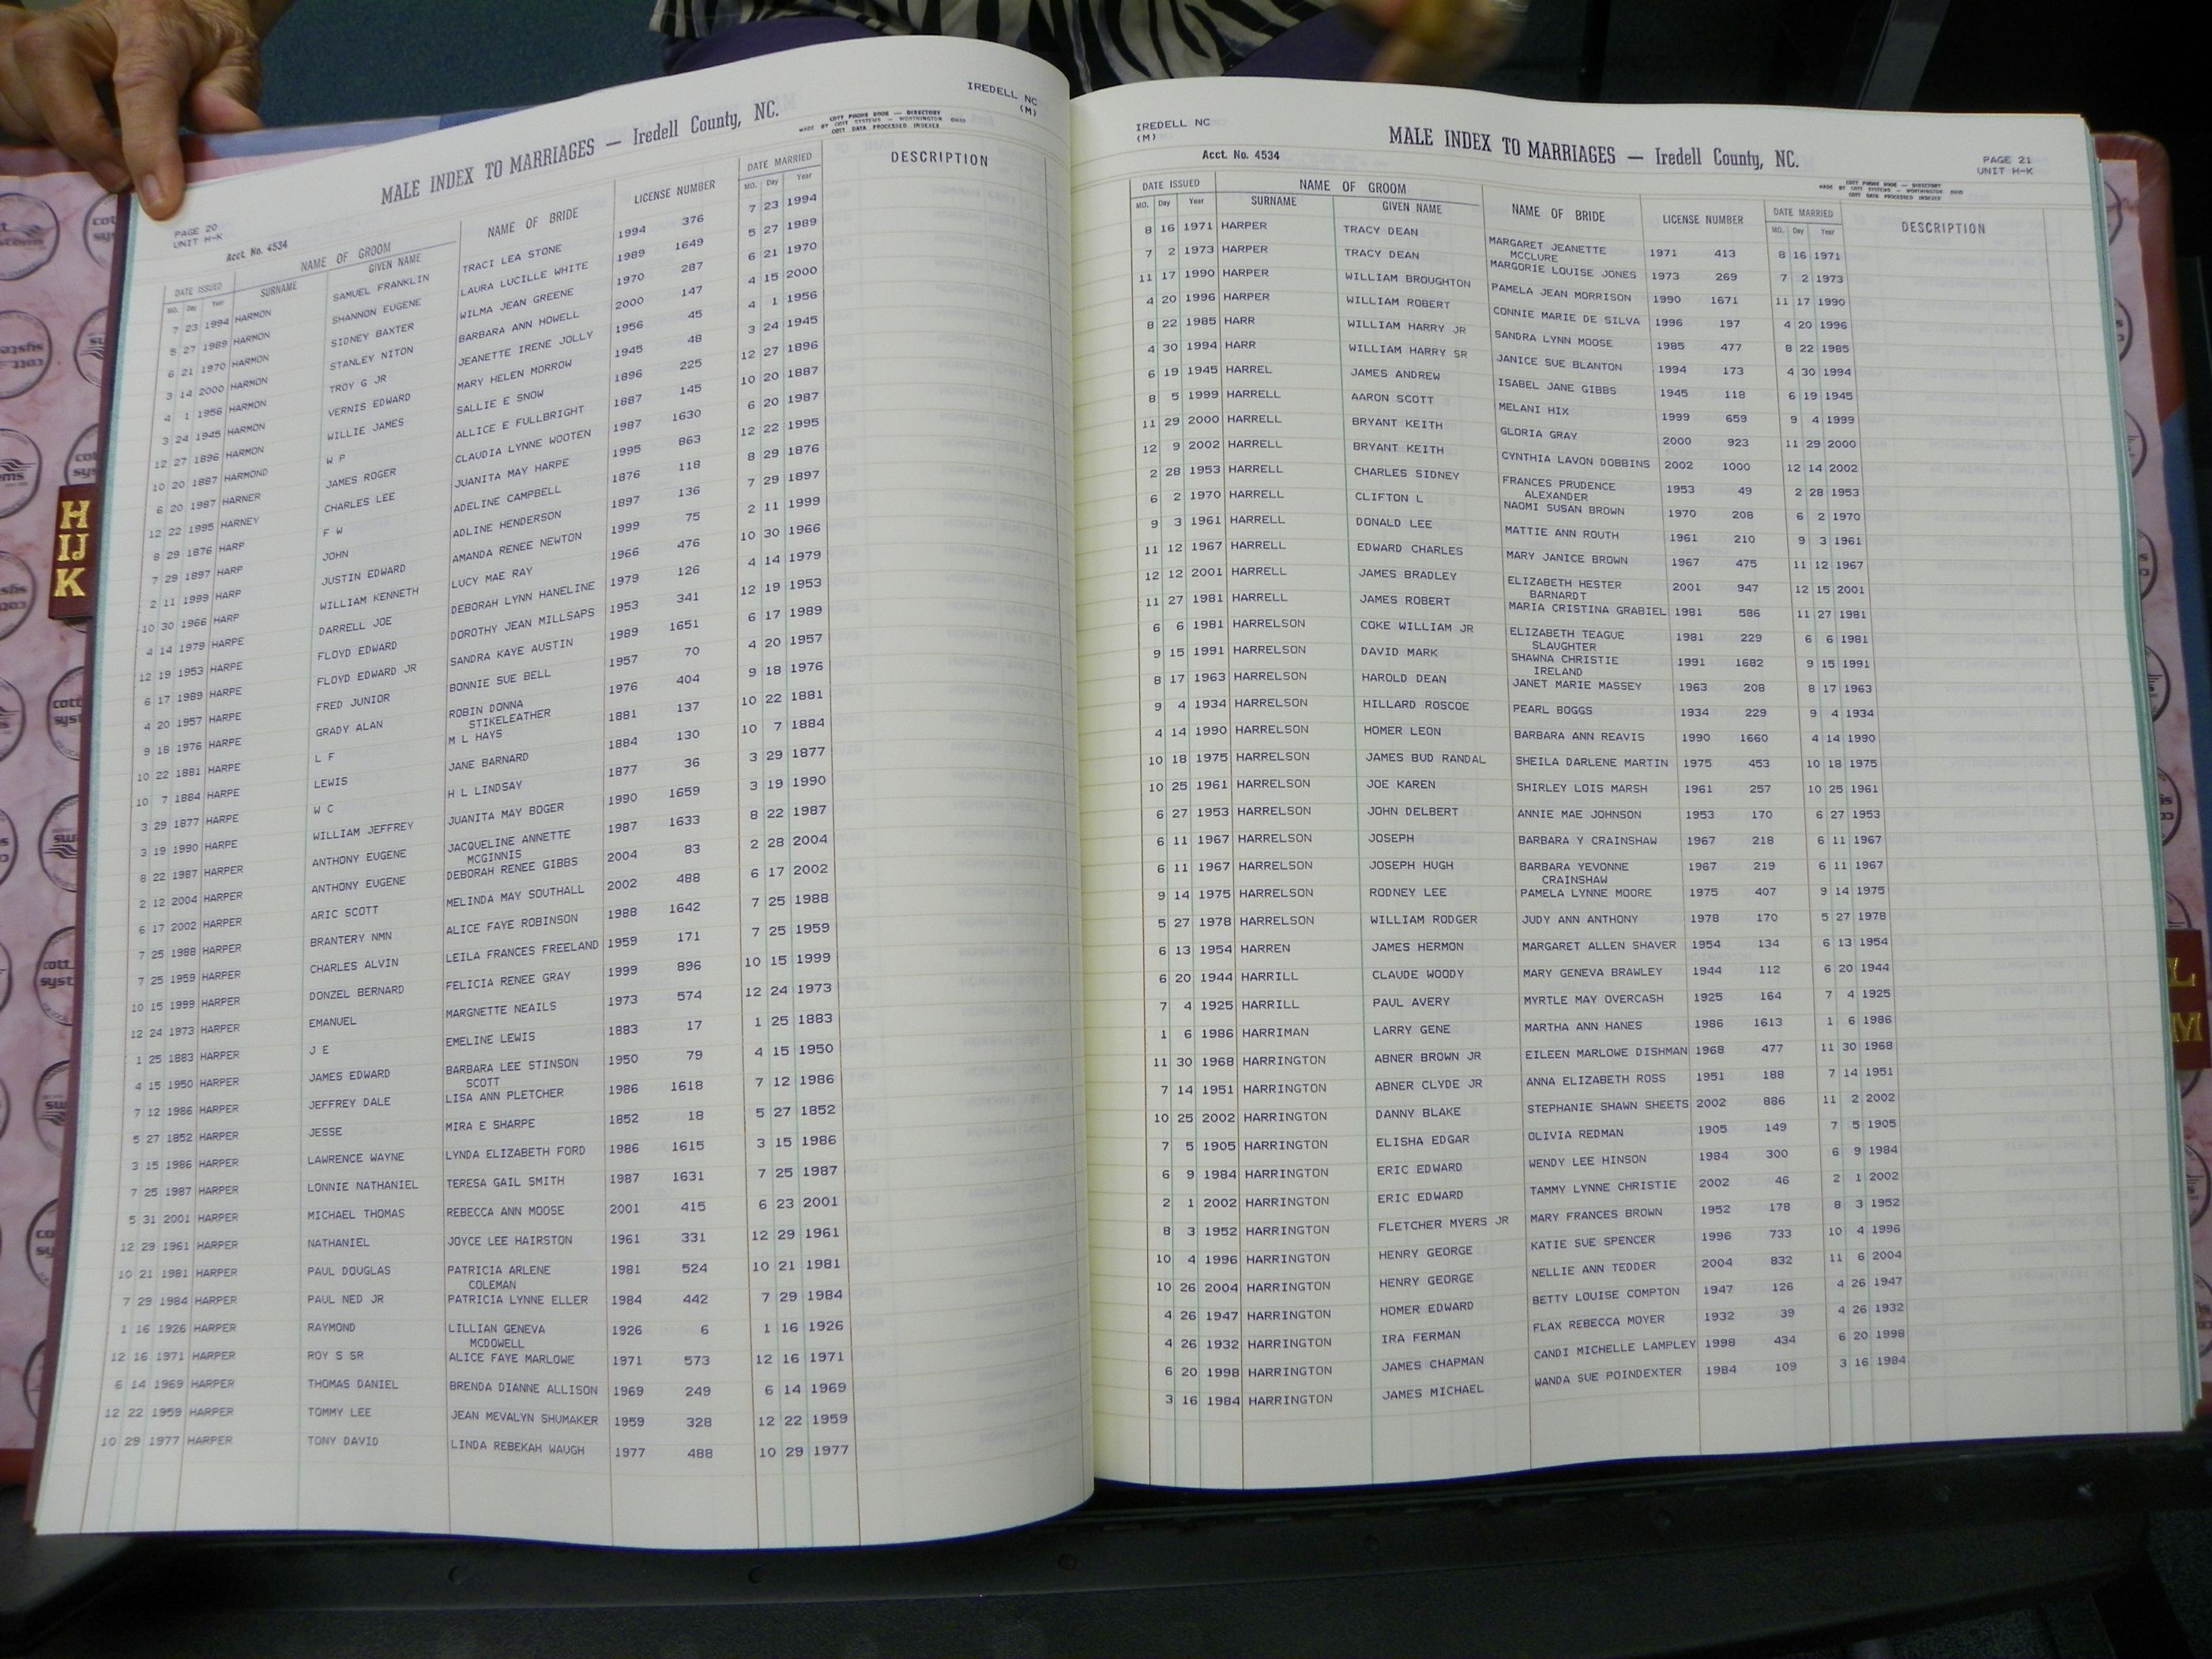 IREDELL NC
(M)
MALE INDEX TO MARRIAGES — Iredell County, NC.
COTT PHONE BOOK — DIRECTORY
MADE BY COTT SYSTEMS — WORTHINGTON OHIO
COTT DATA PROCESSED INDEXER
PAGE 20
UNIT H-K
Acct. No. 4534
DATE ISSUED NAME OF GROOM NAME OF BRIDE LICENSE NUMBER DATE MARRIED DESCRIPTION
MO. Day Year SURNAME GIVEN NAME MO. Day Year
7 23 1994 HARMON SAMUEL FRANKLIN TRACI LEA STONE 1994 376 7 23 1994
5 27 1989 HARMON SHANNON EUGENE LAURA LUCILLE WHITE 1989 1649 5 27 1989
6 21 1970 HARMON SIDNEY BAXTER WILMA JEAN GREENE 1970 287 6 21 1970
3 14 2000 HARMON STANLEY NITON BARBARA ANN HOWELL 2000 147 4 15 2000
4 1 1956 HARMON TROY G JR JEANETTE IRENE JOLLY 1956 45 4 1 1956
3 24 1945 HARMON VERNIS EDWARD MARY HELEN MORROW 1945 48 3 24 1945
12 27 1896 HARMON WILLIE JAMES SALLIE E SNOW 1896 225 12 27 1896
10 20 1887 HARMOND W P ALLICE E FULLBRIGHT 1887 145 10 20 1887
6 20 1987 HARNER JAMES ROGER CLAUDIA LYNNE WOOTEN 1987 1630 6 20 1987
12 22 1995 HARNEY CHARLES LEE JUANITA MAY HARPE 1995 863 12 22 1995
8 29 1876 HARP F W ADELINE CAMPBELL 1876 118 8 29 1876
7 29 1897 HARP JOHN ADLINE HENDERSON 1897 136 7 29 1897
2 11 1999 HARP JUSTIN EDWARD AMANDA RENEE NEWTON 1999 75 2 11 1999
10 30 1966 HARP WILLIAM KENNETH LUCY MAE RAY 1966 476 10 30 1966
4 14 1979 HARPE DARRELL JOE DEBORAH LYNN HANELINE 1979 126 4 14 1979
12 19 1953 HARPE FLOYD EDWARD DOROTHY JEAN MILLSAPS 1953 341 12 19 1953
6 17 1989 HARPE FLOYD EDWARD JR SANDRA KAYE AUSTIN 1989 1651 6 17 1989
4 20 1957 HARPE FRED JUNIOR BONNIE SUE BELL 1957 70 4 20 1957
9 18 1976 HARPE GRADY ALAN ROBIN DONNA 1976 404 9 18 1976
STIKELEATHER
10 22 1881 HARPE L F M L HAYS 1881 137 10 22 1881
10 7 1884 HARPE LEWIS JANE BARNARD 1884 130 10 7 1884
3 29 1877 HARPE W C H L LINDSAY 1877 36 3 29 1877
3 19 1990 HARPE WILLIAM JEFFREY JUANITA MAY BOGER 1990 1659 3 19 1990
8 22 1987 HARPER ANTHONY EUGENE JACQUELINE ANNETTE 1987 1633 8 22 1987
MCGINNIS
2 12 2004 HARPER ANTHONY EUGENE DEBORAH RENEE GIBBS 2004 83 2 28 2004
6 17 2002 HARPER ARIC SCOTT MELINDA MAY SOUTHALL 2002 488 6 17 2002
7 25 1988 HARPER BRANTERY NMN ALICE FAYE ROBINSON 1988 1642 7 25 1988
7 25 1959 HARPER CHARLES ALVIN LEILA FRANCES FREELAND 1959 171 7 25 1959
10 15 1999 HARPER DONZEL BERNARD FELICIA RENEE GRAY 1999 896 10 15 1999
12 24 1973 HARPER EMANUEL MARGNETTE NEAILS 1973 574 12 24 1973
1 25 1883 HARPER J E EMELINE LEWIS 1883 17 1 25 1883
4 15 1950 HARPER JAMES EDWARD BARBARA LEE STINSON 1950 79 4 15 1950
SCOTT
7 12 1986 HARPER JEFFREY DALE LISA ANN PLETCHER 1986 1618 7 12 1986
5 27 1852 HARPER JESSE MIRA E SHARPE 1852 18 5 27 1852
3 15 1986 HARPER LAWRENCE WAYNE LYNDA ELIZABETH FORD 1986 1615 3 15 1986
7 25 1987 HARPER LONNIE NATHANIEL TERESA GAIL SMITH 1987 1631 7 25 1987
5 31 2001 HARPER MICHAEL THOMAS REBECCA ANN MOOSE 2001 415 6 23 2001
12 29 1961 HARPER NATHANIEL JOYCE LEE HAIRSTON 1961 331 12 29 1961
10 21 1981 HARPER PAUL DOUGLAS PATRICIA ARLENE 1981 524 10 21 1981
COLEMAN
7 29 1984 HARPER PAUL NED JR PATRICIA LYNNE ELLER 1984 442 7 29 1984
1 16 1926 HARPER RAYMOND LILLIAN GENEVA 1926 6 1 16 1926
MCDOWELL
12 16 1971 HARPER ROY S SR ALICE FAYE MARLOWE 1971 573 12 16 1971
6 14 1969 HARPER THOMAS DANIEL BRENDA DIANNE ALLISON 1969 249 6 14 1969
12 22 1959 HARPER TOMMY LEE JEAN MEVALYN SHUMAKER 1959 328 12 22 1959
10 29 1977 HARPER TONY DAVID LINDA REBEKAH WAUGH 1977 488 10 29 1977
H
IJ
K
IREDELL NC
(M)
MALE INDEX TO MARRIAGES — Iredell County, NC.
Acct. No. 4534
PAGE 21
UNIT H-K
COTT PHONE BOOK — DIRECTORY
MADE BY COTT SYSTEMS — WORTHINGTON OHIO
COTT DATA PROCESSED INDEXER
DATE ISSUED NAME OF GROOM NAME OF BRIDE LICENSE NUMBER DATE MARRIED DESCRIPTION
MO. Day Year SURNAME GIVEN NAME MO. Day Year
8 16 1971 HARPER TRACY DEAN MARGARET JEANETTE 1971 413 8 16 1971
MCCLURE
7 2 1973 HARPER TRACY DEAN MARGORIE LOUISE JONES 1973 269 7 2 1973
11 17 1990 HARPER WILLIAM BROUGHTON PAMELA JEAN MORRISON 1990 1671 11 17 1990
4 20 1996 HARPER WILLIAM ROBERT CONNIE MARIE DE SILVA 1996 197 4 20 1996
8 22 1985 HARR WILLIAM HARRY JR SANDRA LYNN MOOSE 1985 477 8 22 1985
4 30 1994 HARR WILLIAM HARRY SR JANICE SUE BLANTON 1994 173 4 30 1994
6 19 1945 HARREL JAMES ANDREW ISABEL JANE GIBBS 1945 118 6 19 1945
8 5 1999 HARRELL AARON SCOTT MELANI HIX 1999 659 9 4 1999
11 29 2000 HARRELL BRYANT KEITH GLORIA GRAY 2000 923 11 29 2000
12 9 2002 HARRELL BRYANT KEITH CYNTHIA LAVON DOBBINS 2002 1000 12 14 2002
2 28 1953 HARRELL CHARLES SIDNEY FRANCES PRUDENCE 1953 49 2 28 1953
ALEXANDER
6 2 1970 HARRELL CLIFTON L NAOMI SUSAN BROWN 1970 208 6 2 1970
9 3 1961 HARRELL DONALD LEE MATTIE ANN ROUTH 1961 210 9 3 1961
11 12 1967 HARRELL EDWARD CHARLES MARY JANICE BROWN 1967 475 11 12 1967
12 12 2001 HARRELL JAMES BRADLEY ELIZABETH HESTER 2001 947 12 15 2001
BARNARDT
11 27 1981 HARRELL JAMES ROBERT MARIA CRISTINA GRABIEL 1981 586 11 27 1981
6 6 1981 HARRELSON COKE WILLIAM JR ELIZABETH TEAGUE 1981 229 6 6 1981
SLAUGHTER
9 15 1991 HARRELSON DAVID MARK SHAWNA CHRISTIE 1991 1682 9 15 1991
IRELAND
8 17 1963 HARRELSON HAROLD DEAN JANET MARIE MASSEY 1963 208 8 17 1963
9 4 1934 HARRELSON HILLARD ROSCOE PEARL BOGGS 1934 229 9 4 1934
4 14 1990 HARRELSON HOMER LEON BARBARA ANN REAVIS 1990 1660 4 14 1990
10 18 1975 HARRELSON JAMES BUD RANDAL SHEILA DARLENE MARTIN 1975 453 10 18 1975
10 25 1961 HARRELSON JOE KAREN SHIRLEY LOIS MARSH 1961 257 10 25 1961
6 27 1953 HARRELSON JOHN DELBERT ANNIE MAE JOHNSON 1953 170 6 27 1953
6 11 1967 HARRELSON JOSEPH BARBARA Y CRAINSHAW 1967 218 6 11 1967
6 11 1967 HARRELSON JOSEPH HUGH BARBARA YEVONNE 1967 219 6 11 1967
CRAINSHAW
9 14 1975 HARRELSON RODNEY LEE PAMELA LYNNE MOORE 1975 407 9 14 1975
5 27 1978 HARRELSON WILLIAM RODGER JUDY ANN ANTHONY 1978 170 5 27 1978
6 13 1954 HARREN JAMES HERMON MARGARET ALLEN SHAVER 1954 134 6 13 1954
6 20 1944 HARRILL CLAUDE WOODY MARY GENEVA BRAWLEY 1944 112 6 20 1944
7 4 1925 HARRILL PAUL AVERY MYRTLE MAY OVERCASH 1925 164 7 4 1925
1 6 1986 HARRIMAN LARRY GENE MARTHA ANN HANES 1986 1613 1 6 1986
11 30 1968 HARRINGTON ABNER BROWN JR EILEEN MARLOWE DISHMAN 1968 477 11 30 1968
7 14 1951 HARRINGTON ABNER CLYDE JR ANNA ELIZABETH ROSS 1951 188 7 14 1951
10 25 2002 HARRINGTON DANNY BLAKE STEPHANIE SHAWN SHEETS 2002 886 11 2 2002
7 5 1905 HARRINGTON ELISHA EDGAR OLIVIA REDMAN 1905 149 7 5 1905
6 9 1984 HARRINGTON ERIC EDWARD WENDY LEE HINSON 1984 300 6 9 1984
2 1 2002 HARRINGTON ERIC EDWARD TAMMY LYNNE CHRISTIE 2002 46 2 1 2002
8 3 1952 HARRINGTON FLETCHER MYERS JR MARY FRANCES BROWN 1952 178 8 3 1952
10 4 1996 HARRINGTON HENRY GEORGE KATIE SUE SPENCER 1996 733 10 4 1996
10 26 2004 HARRINGTON HENRY GEORGE NELLIE ANN TEDDER 2004 832 11 6 2004
4 26 1947 HARRINGTON HOMER EDWARD BETTY LOUISE COMPTON 1947 126 4 26 1947
4 26 1932 HARRINGTON IRA FERMAN FLAX REBECCA MOYER 1932 39 4 26 1932
6 20 1998 HARRINGTON JAMES CHAPMAN CANDI MICHELLE LAMPLEY 1998 434 6 20 1998
3 16 1984 HARRINGTON JAMES MICHAEL WANDA SUE POINDEXTER 1984 109 3 16 1984
L
M